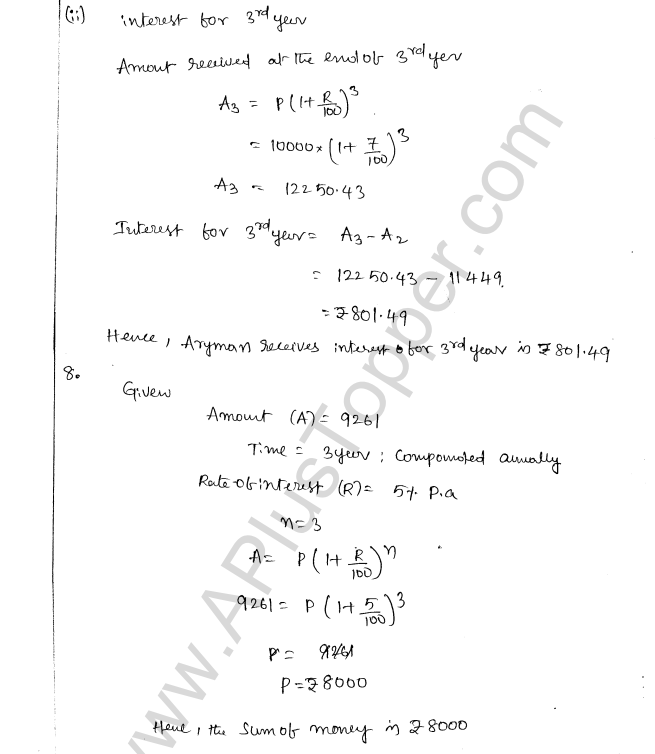 (ii) interest for 3rd year
Amout received at the end of 3rd yer
A3 = P(1+R/100)^3
= 10000×(1+ 7/100)^3
A3 = 12250.43
Interest for 3rd year = A3 - A2
= 12250.43 - 11449
= ₹801.49
Hence, Aryman receives interest for 3rd year is ₹801.49
8.
Given
Amount (A) = 9261
Time = 3 year ; Compounded annually
Rate of interest (R) = 5% P.a
n=3
A= P(1+ R/100)^n
9261 = P(1+ 5/100)^3
P = 9261
P = ₹8000
Hence, the sum of money is ₹8000
www.APlusTopper.com